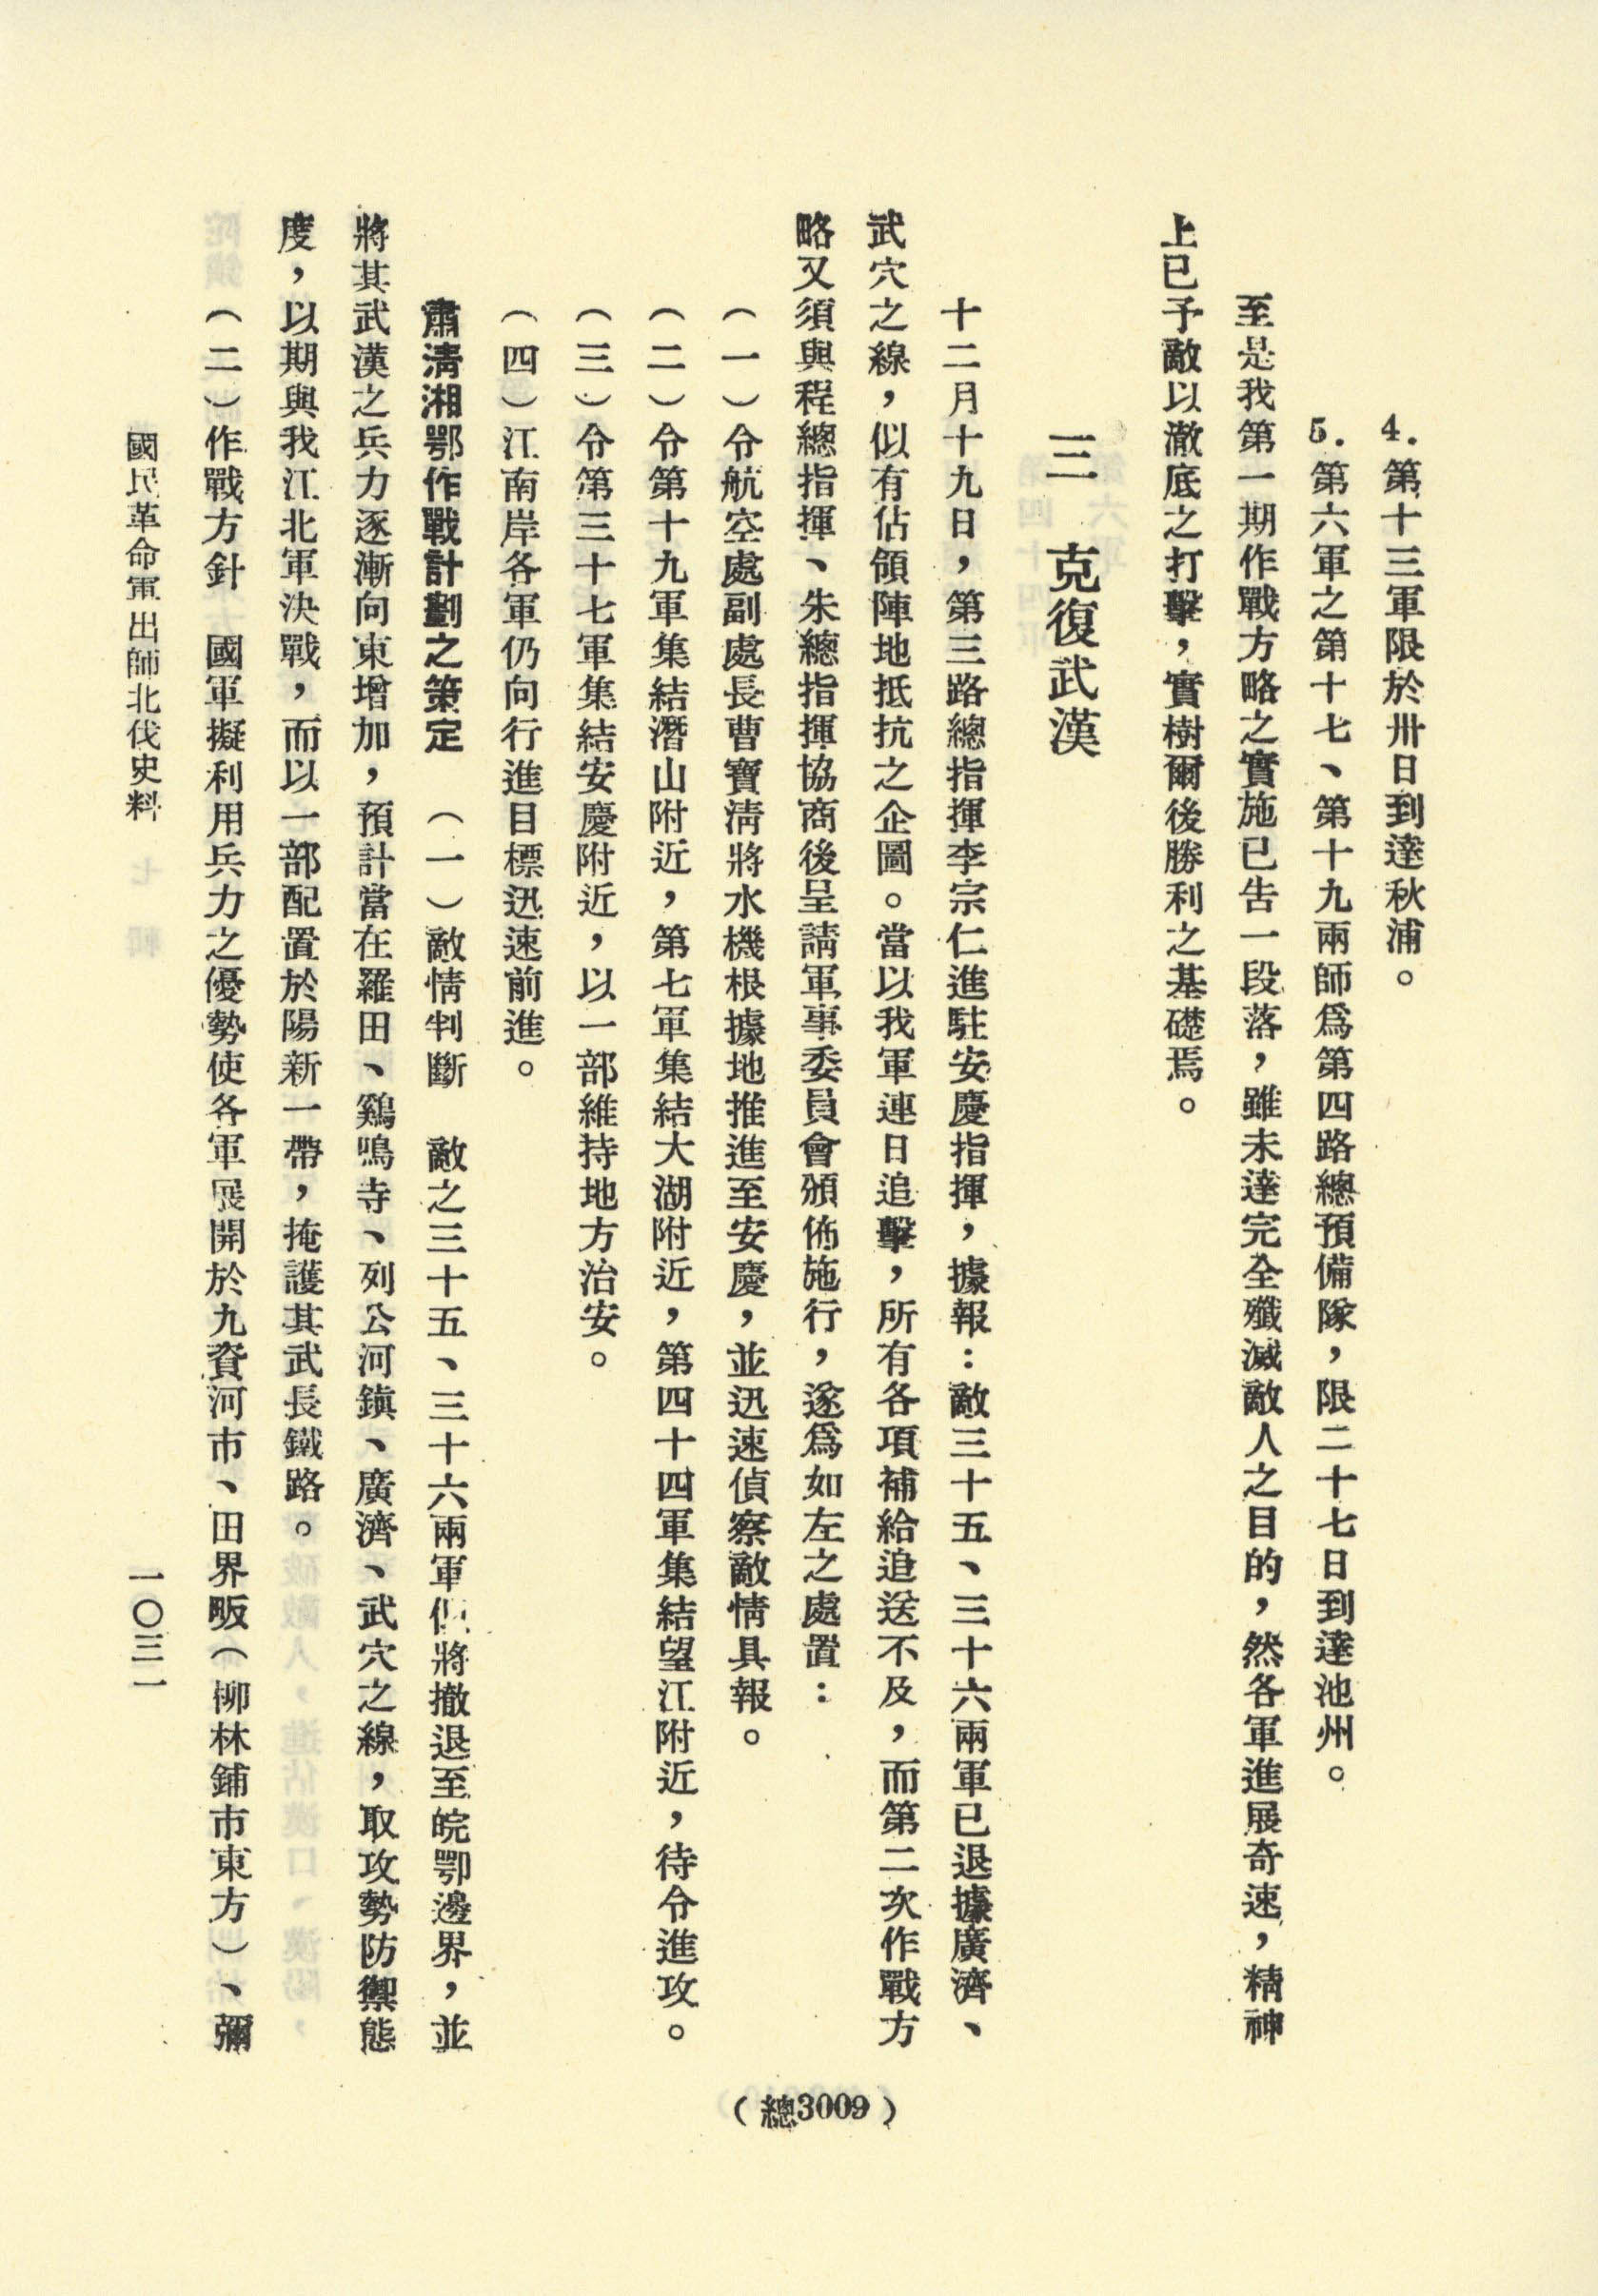 4.第十三軍限於卅日到達秋浦。
5.第六軍之第十七、第十九兩師爲第四路總預備隊，限二十七日到達池州。
至是我第一期作戰方略之實施已告一段落，雖未達完全殲滅敵人之目的，然各軍進展奇速，精神
上已予敵以澈底之打擊，實樹爾後勝利之基礎焉。
三　克復武漢
十二月十九日，第三路總指揮李宗仁進駐安慶指揮，據報：敵三十五、三十六兩軍已退據廣濟、
武穴之線，似有佔領陣地抵抗之企圖。當以我軍連日追擊，所有各項補給追送不及，而第二次作戰方
略又須與程總指揮、朱總指揮協商後呈請軍事委員會頒佈施行，遂爲如左之處置：
（一）令航空處副處長曹寶清將水機根據地推進至安慶，並迅速偵察敵情具報。
（二）令第十九軍集結潛山附近，第七軍集結大湖附近，第四十四軍集結望江附近，待令進攻。
（三）令第三十七軍集結安慶附近，以一部維持地方治安。
（四）江南岸各軍仍向行進目標迅速前進。
肅清湘鄂作戰計劃之策定　（一）敵情判斷　敵之三十五、三十六兩軍似將撤退至皖鄂邊界，並
將其武漢之兵力逐漸向東增加，預計當在羅田、鷄鳴寺、列公河鎮、廣濟、武穴之線，取攻勢防禦態
度，以期與我江北軍決戰，而以一部配置於陽新一帶，掩護其武長鐵路。
（二）作戰方針　國軍擬利用兵力之優勢使各軍展開於九資河市、田界畈（柳林鋪市東方）、彌
國民革命軍出師北伐史料
一〇三一
（總3009）